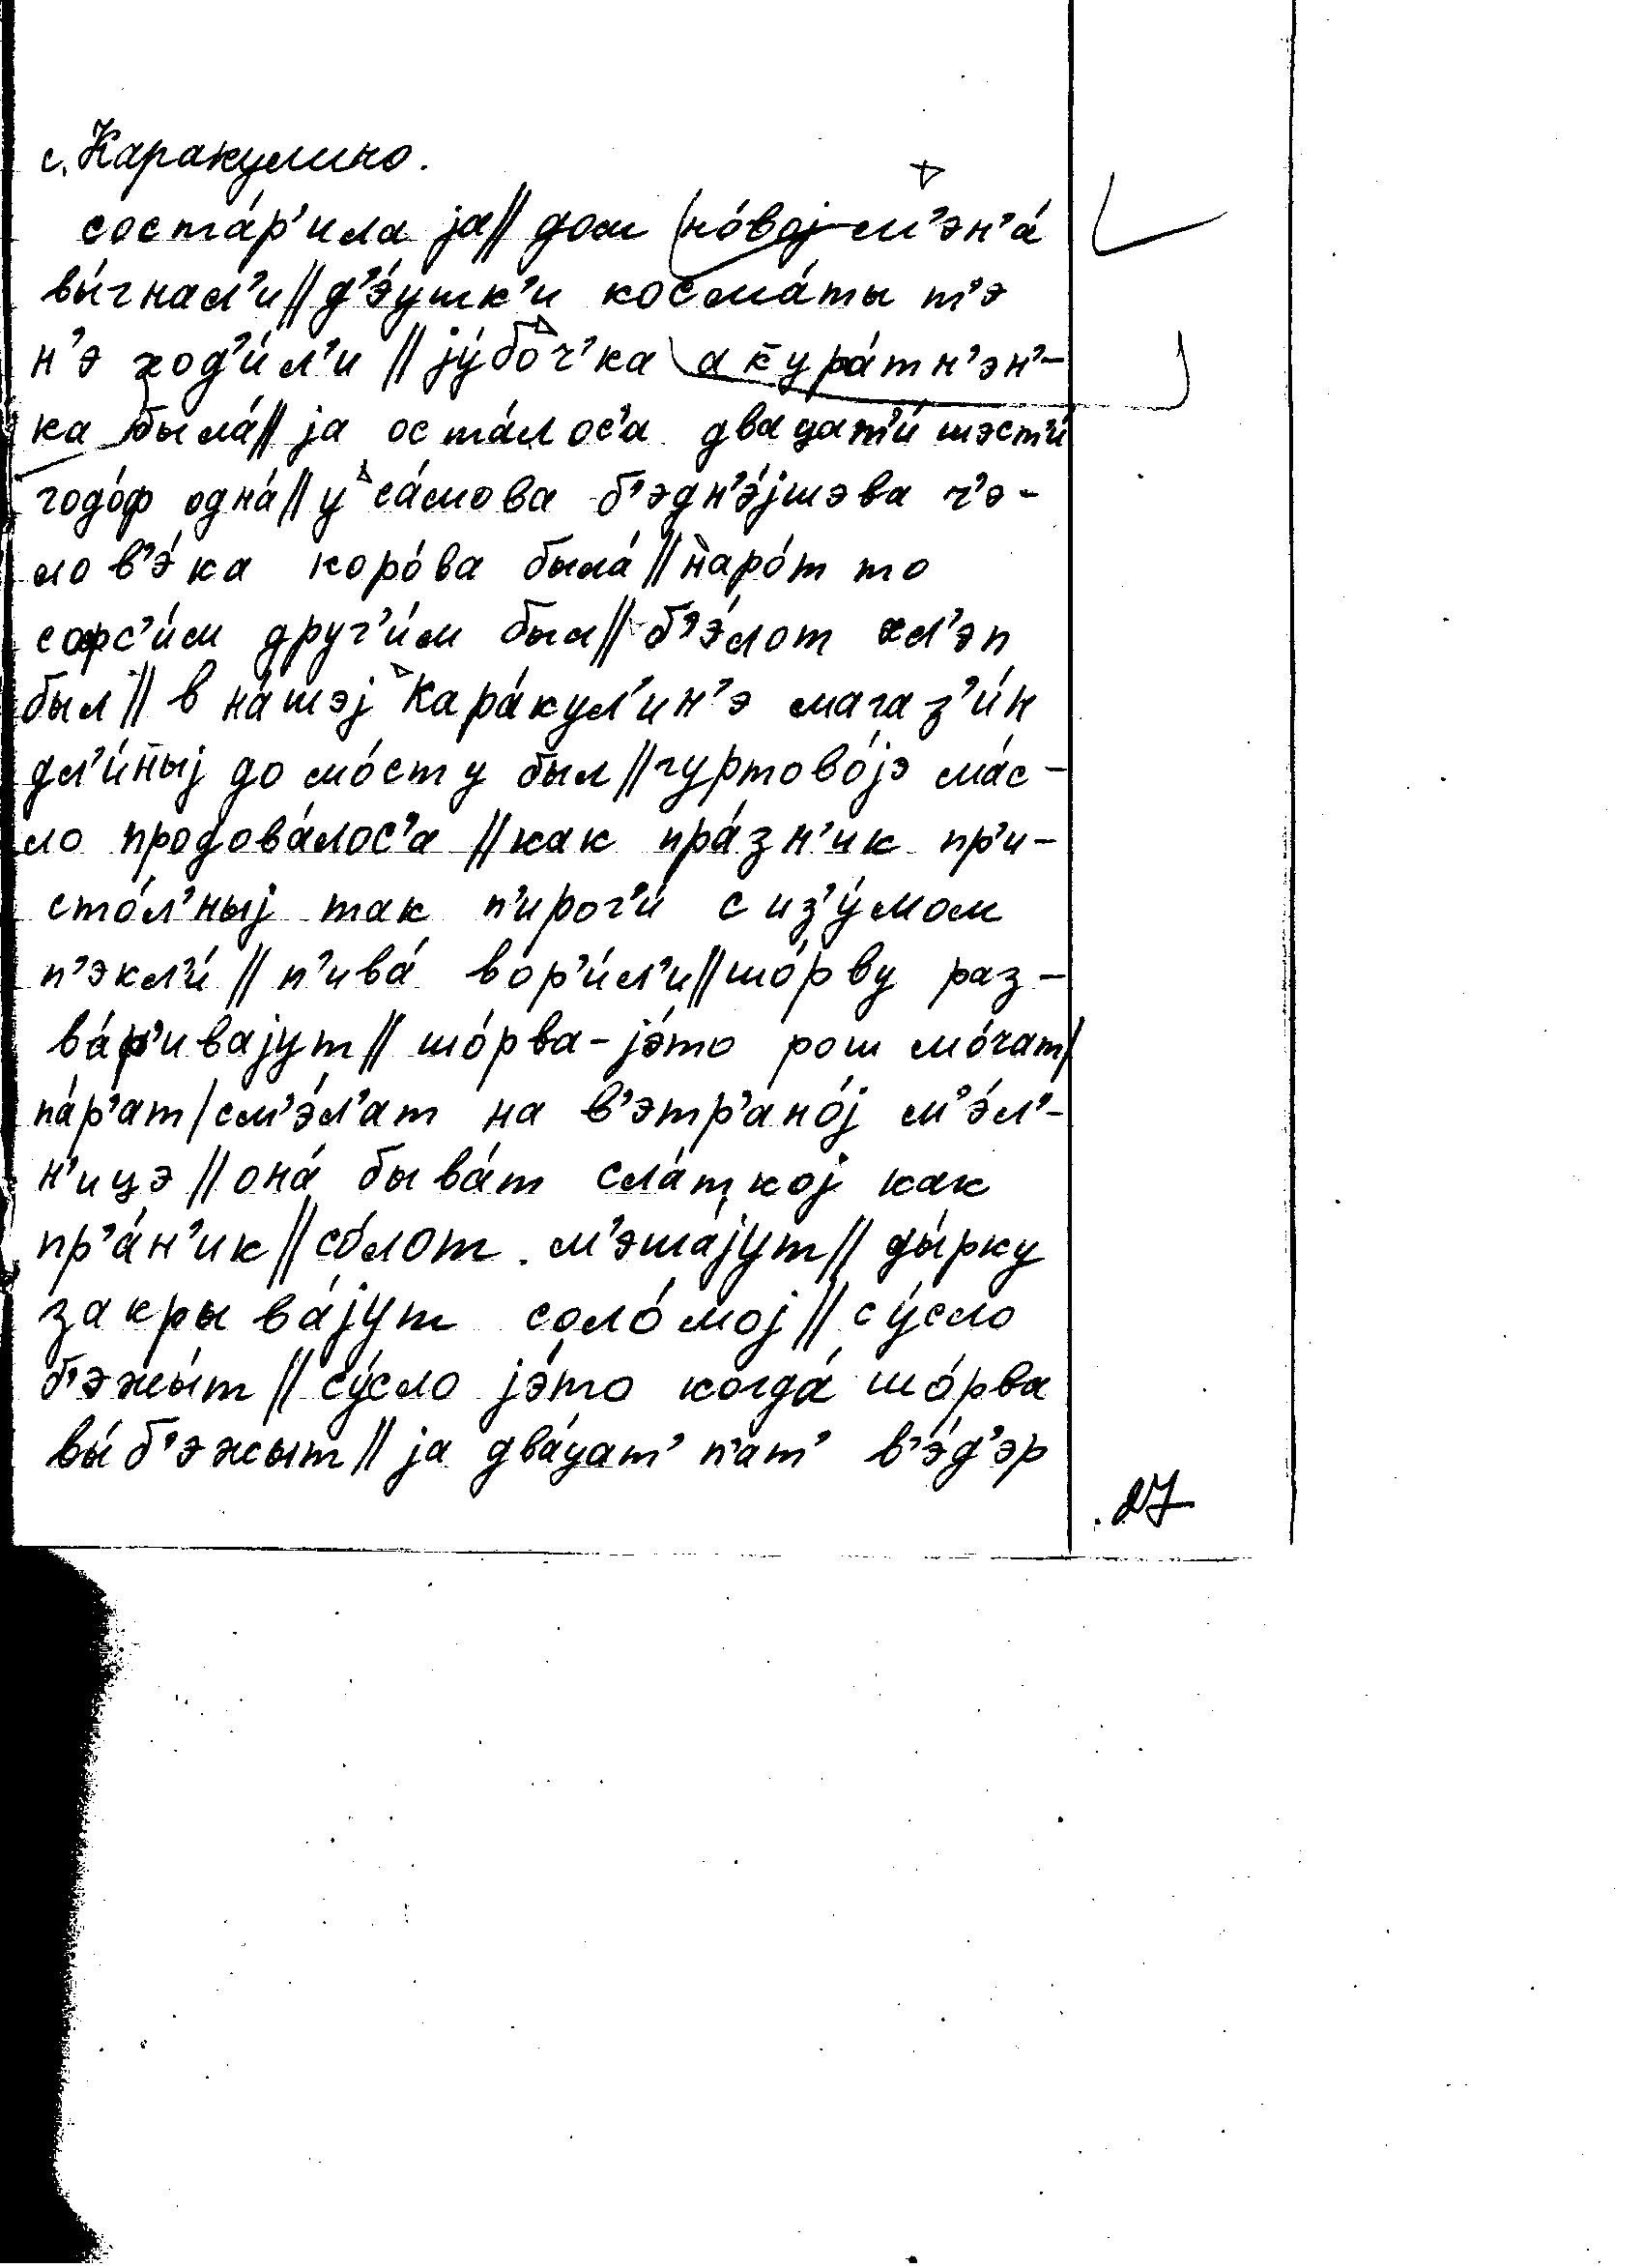 с. Каракулино.
соста́р'ила ја // дом но́вој м'эн'а́
вы́гнал'и // д'э́ушк'и косма́ты т'э
н'э ход'и́л'и // јýбоч'ка ак̄ура́тн'эн'-
ка была́ // ја оста́лос'а двацат'и́ шэст'и́
годо́ф одна́ // у са́мова б'эдн'э́јшэва ч'э-
лов'э́ка коро́ва была́ // наро́т то
софс'и́м друг'и́м был // б'э́лот хл'эп
был // в на́шэј Кара́кул'ин'э магаз'и́н
дл'и́н̄ыј до мо́сту был // гуртово́јэ ма́с-
ло продова́лос'а // как пра́зн'ик пр'и-
сто́л'ныј так п'ирог'и́ с из'ýмом
п'экл'и́ // п'ива́ вор'и́л'и // шо́рву раз-
ва́р'ивајут // шо́рва - јэ́то рош мо́чат /
па́р'ат / см'э́л'ат на в'этр'ано́ј м'э́л'-
н'ицэ // она́ быва́т сла́ткој как
пр'а́н'ик // со́лот м'эша́јут // ды́рку
закрыва́јут соло́мој // сýсло
б'эжы́т // сýсло јэ́то когда́ шо́рва
вы́б'эжыт // ја два́цат' п'ат' в'э́д'эр
27